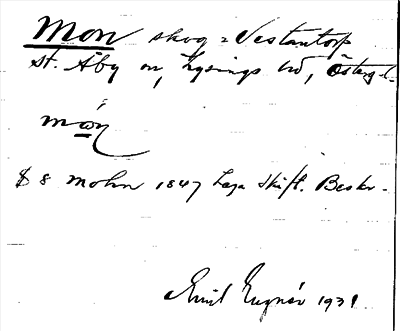 Mon skog, Västantorp
st. Åby sn, Lysings hd, Östergl.
mon
§ 8 Mohn 1847 Laga Skift. Beskr.
Emil Eugnér 1931